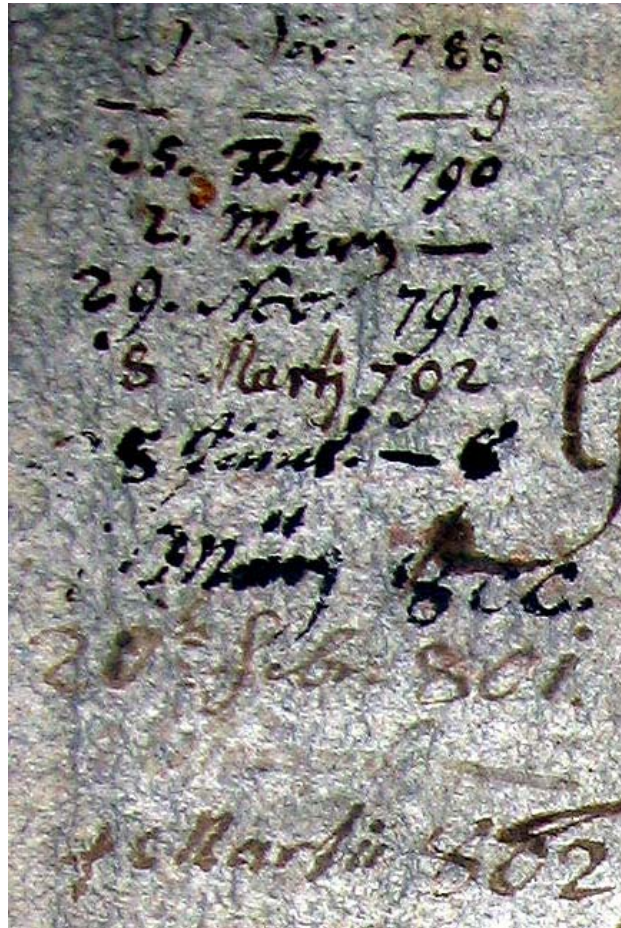 9. Nov: 788
— — —9
25. Febr: 790
2. März —
29. Nov: 791.
8 Martj 792
5 —6
März 800.
20t Febr 801.
Martii 802